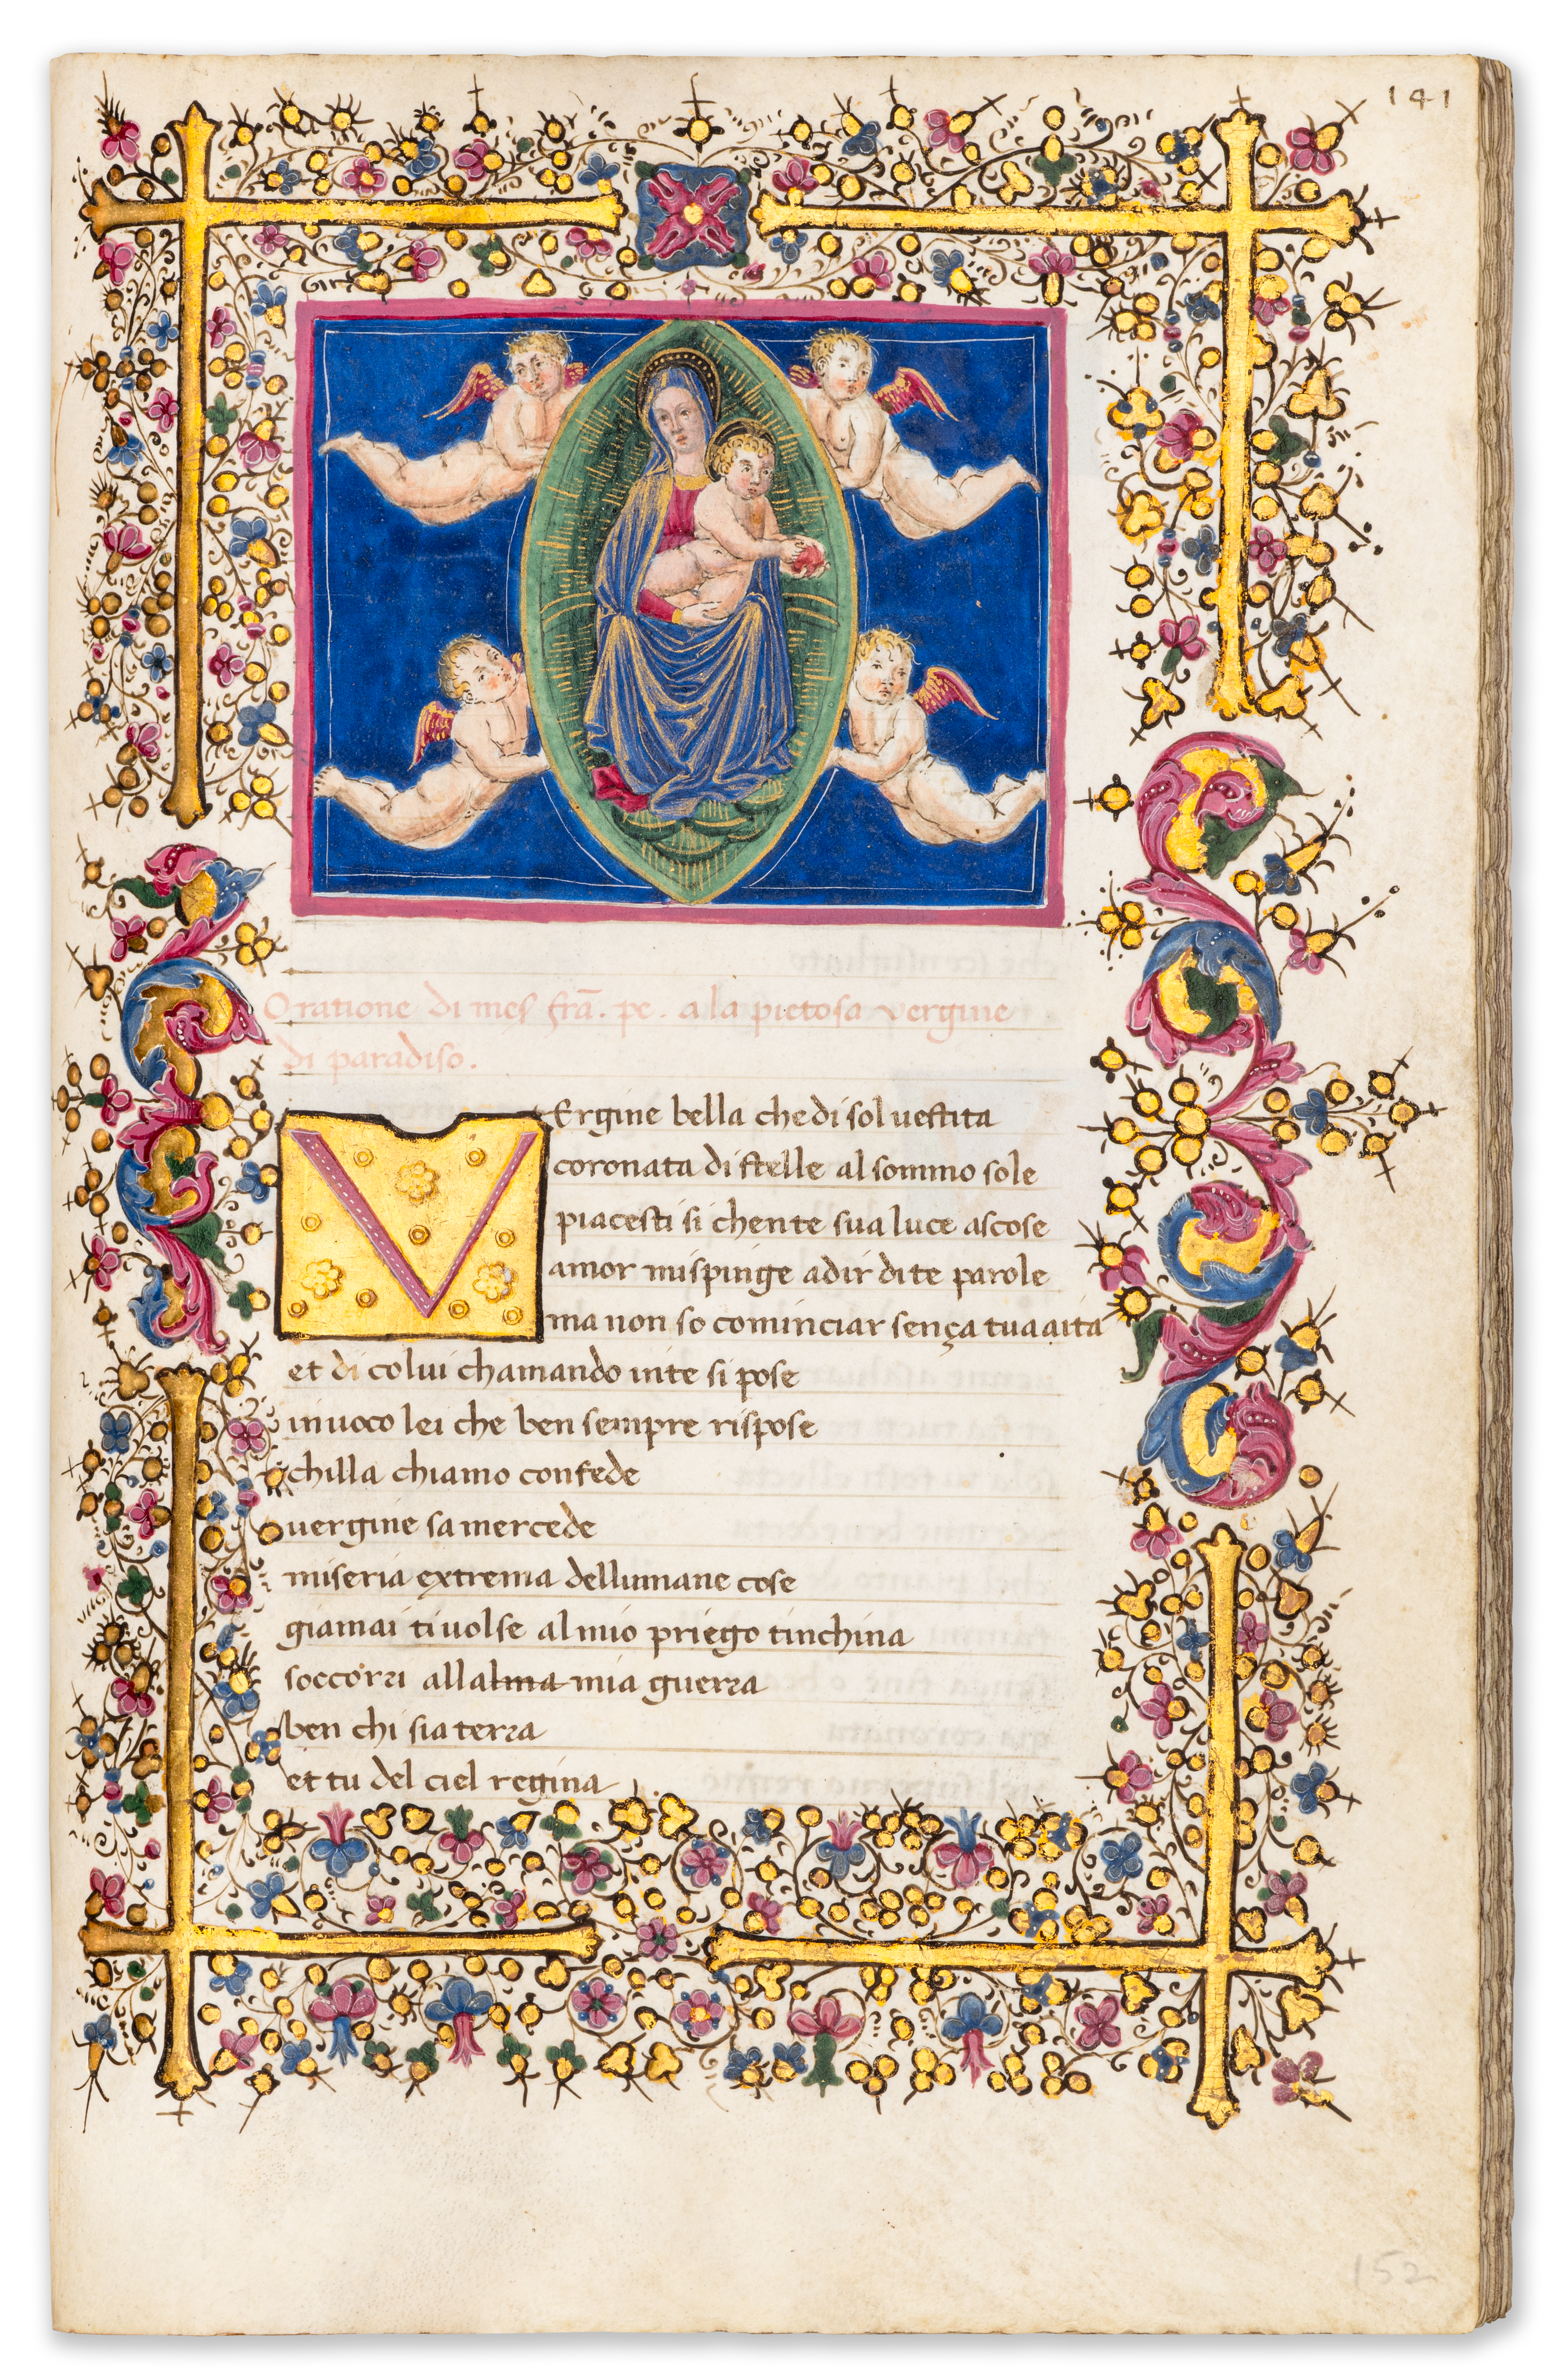 141
Oratione di mess frã. pe. a la pietosa vergine
di paradiso.
VErgine bella che di sol uestita
coronata di stelle al sommo sole
piacesti si chente sua luce ascose
amor mispinge adir di te parole
ma non so cominciar sença tua aita
et di colui chamando inte si pose
inuoco lei che ben sempre rispose
chilla chiamo con fede
uergine sa mercede
miseria extrema dellumane cose
giamai ti uolse al mio priego tinchina
soccorri allalma mia guerra
ben chi sia terra
et tu del ciel regina
152